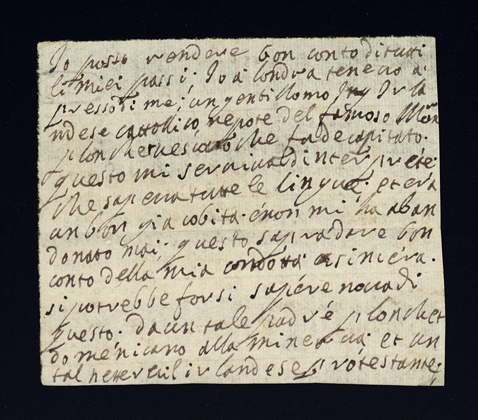 Io posso rendere bon conto di tutti
li miei passi: Io a londra tenevo a
pressodi me, un gentilomo Irla
ndese cattolico nepote del famoso
plonchet vescovo che fu decapitato.
questo mi serviva d'interprete
che sapeva tutte le lingue, et era
un bon giacobita. e non mi ha aban
donato mai; questo sapra dare bon
conto della mia condotta sincera.
si potrebbe forsi sapere nova di
questo. da un tale padre plonchet
domenicano alla minerva; et un
tal irlandese protestante;